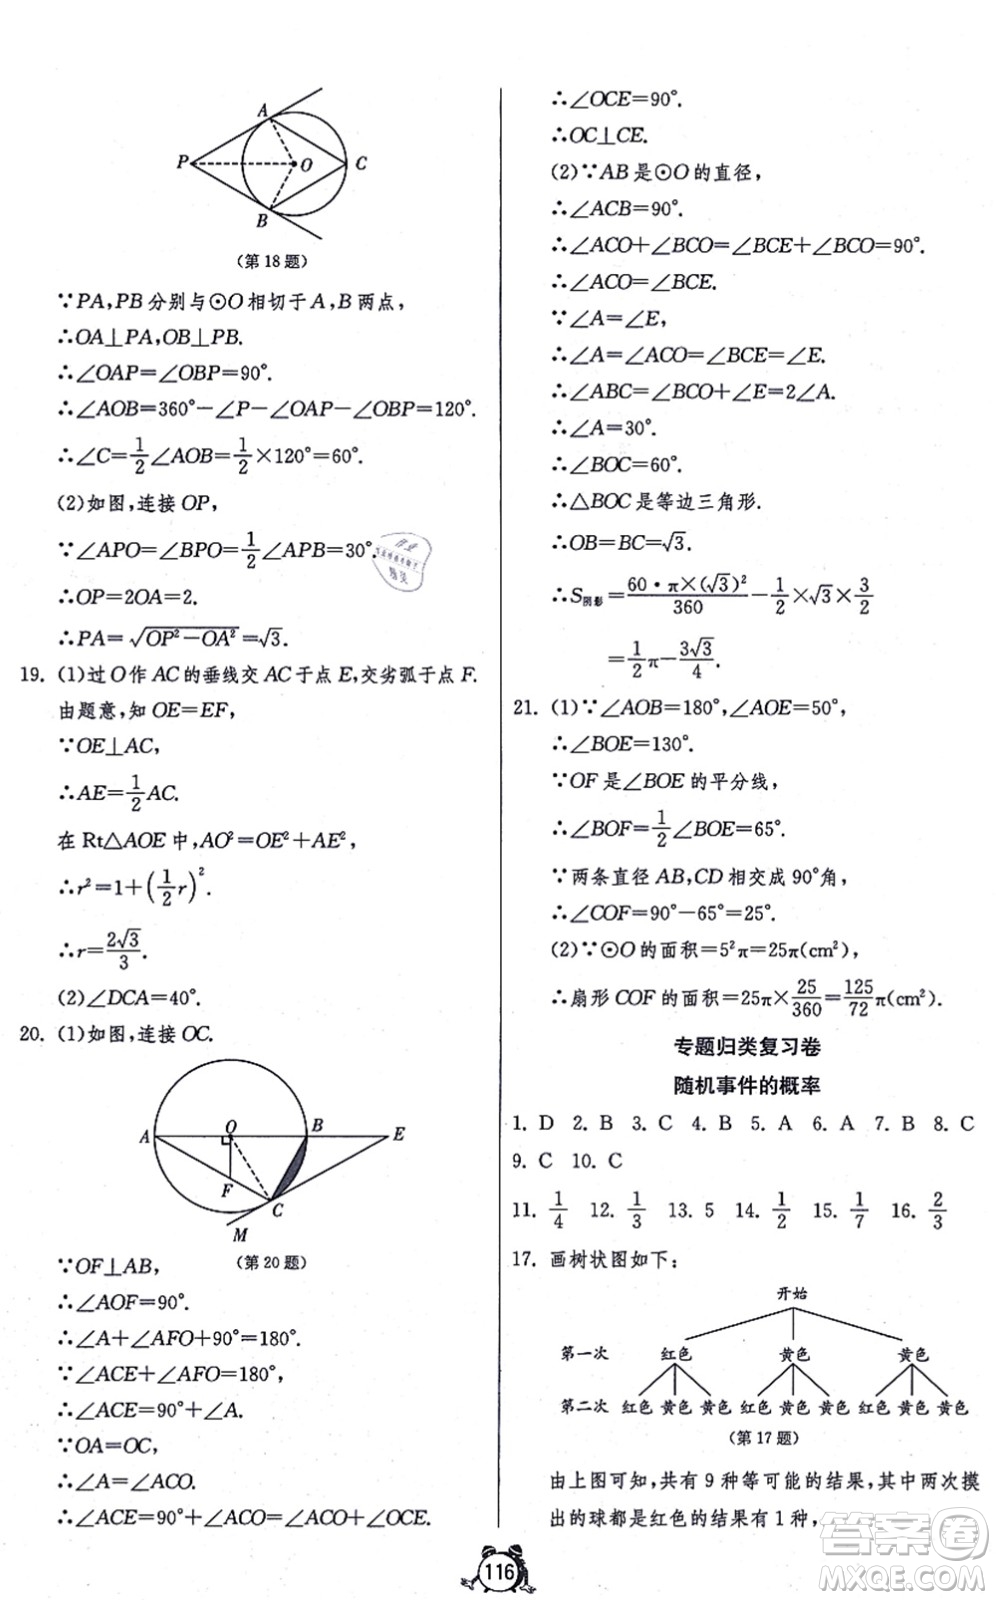 A
P
O
C
B
(第18题)
∵PA,PB分别与⊙O相切于A,B两点,
∴OA⊥PA,OB⊥PB.
∴∠OAP=∠OBP=90°.
∴∠AOB=360°-∠P-∠OAP-∠OBP=120°.
∴∠C=1/2∠AOB=1/2×120°=60°.
(2)如图,连接OP,
∵∠APO=∠BPO=1/2∠APB=30°.
∴OP=2OA=2.
∴PA=√(OP²-OA²)=√3.
19. (1)过O作AC的垂线交AC于点E,交劣弧于点F.
由题意,知OE=EF,
∵OE⊥AC,
∴AE=1/2AC.
在Rt△AOE中,AO²=OE²+AE²,
∴r²=1+(1/2r)².
∴r=2√3/3.
(2)∠DCA=40°.
20. (1)如图,连接OC.
A
O
B
E
F
C
M
(第20题)
∵OF⊥AB,
∴∠AOF=90°.
∴∠A+∠AFO+90°=180°.
∵∠ACE+∠AFO=180°,
∴∠ACE=90°+∠A.
∵OA=OC,
∴∠A=∠ACO.
∴∠ACE=90°+∠ACO=∠ACO+∠OCE.
∴∠OCE=90°.
∴OC⊥CE.
(2)∵AB是⊙O的直径,
∴∠ACB=90°.
∴∠ACO+∠BCO=∠BCE+∠BCO=90°.
∴∠ACO=∠BCE.
∵∠A=∠E,
∴∠A=∠ACO=∠BCE=∠E.
∴∠ABC=∠BCO+∠E=2∠A.
∴∠A=30°.
∴∠BOC=60°.
∴△BOC是等边三角形.
∴OB=BC=√3.
∴S阴影=60·π×(√3)²/360-1/2×√3×3/2
=1/2π-3√3/4.
21. (1)∵∠AOB=180°,∠AOE=50°,
∴∠BOE=130°.
∵OF是∠BOE的平分线,
∴∠BOF=1/2∠BOE=65°.
∵两条直径AB,CD相交成90°角,
∴∠COF=90°-65°=25°.
(2)∵⊙O的面积=5²π=25π(cm²),
∴扇形COF的面积=25π×25/360=125/72π(cm²).
专题归类复习卷
随机事件的概率
1. D 2. B 3. C 4. B 5. A 6. A 7. B 8. C
9. C 10. C
11. 1/4 12. 1/3 13. 5 14. 1/2 15. 1/7 16. 2/3
17. 画树状图如下:
开始
第一次 红色 黄色 黄色
第二次 红色 黄色 黄色 红色 黄色 黄色 红色 黄色 黄色
(第17题)
由上图可知,共有9种等可能的结果,其中两次摸
出的球都是红色的结果有1种,
116
答案卷
MXQE.COM